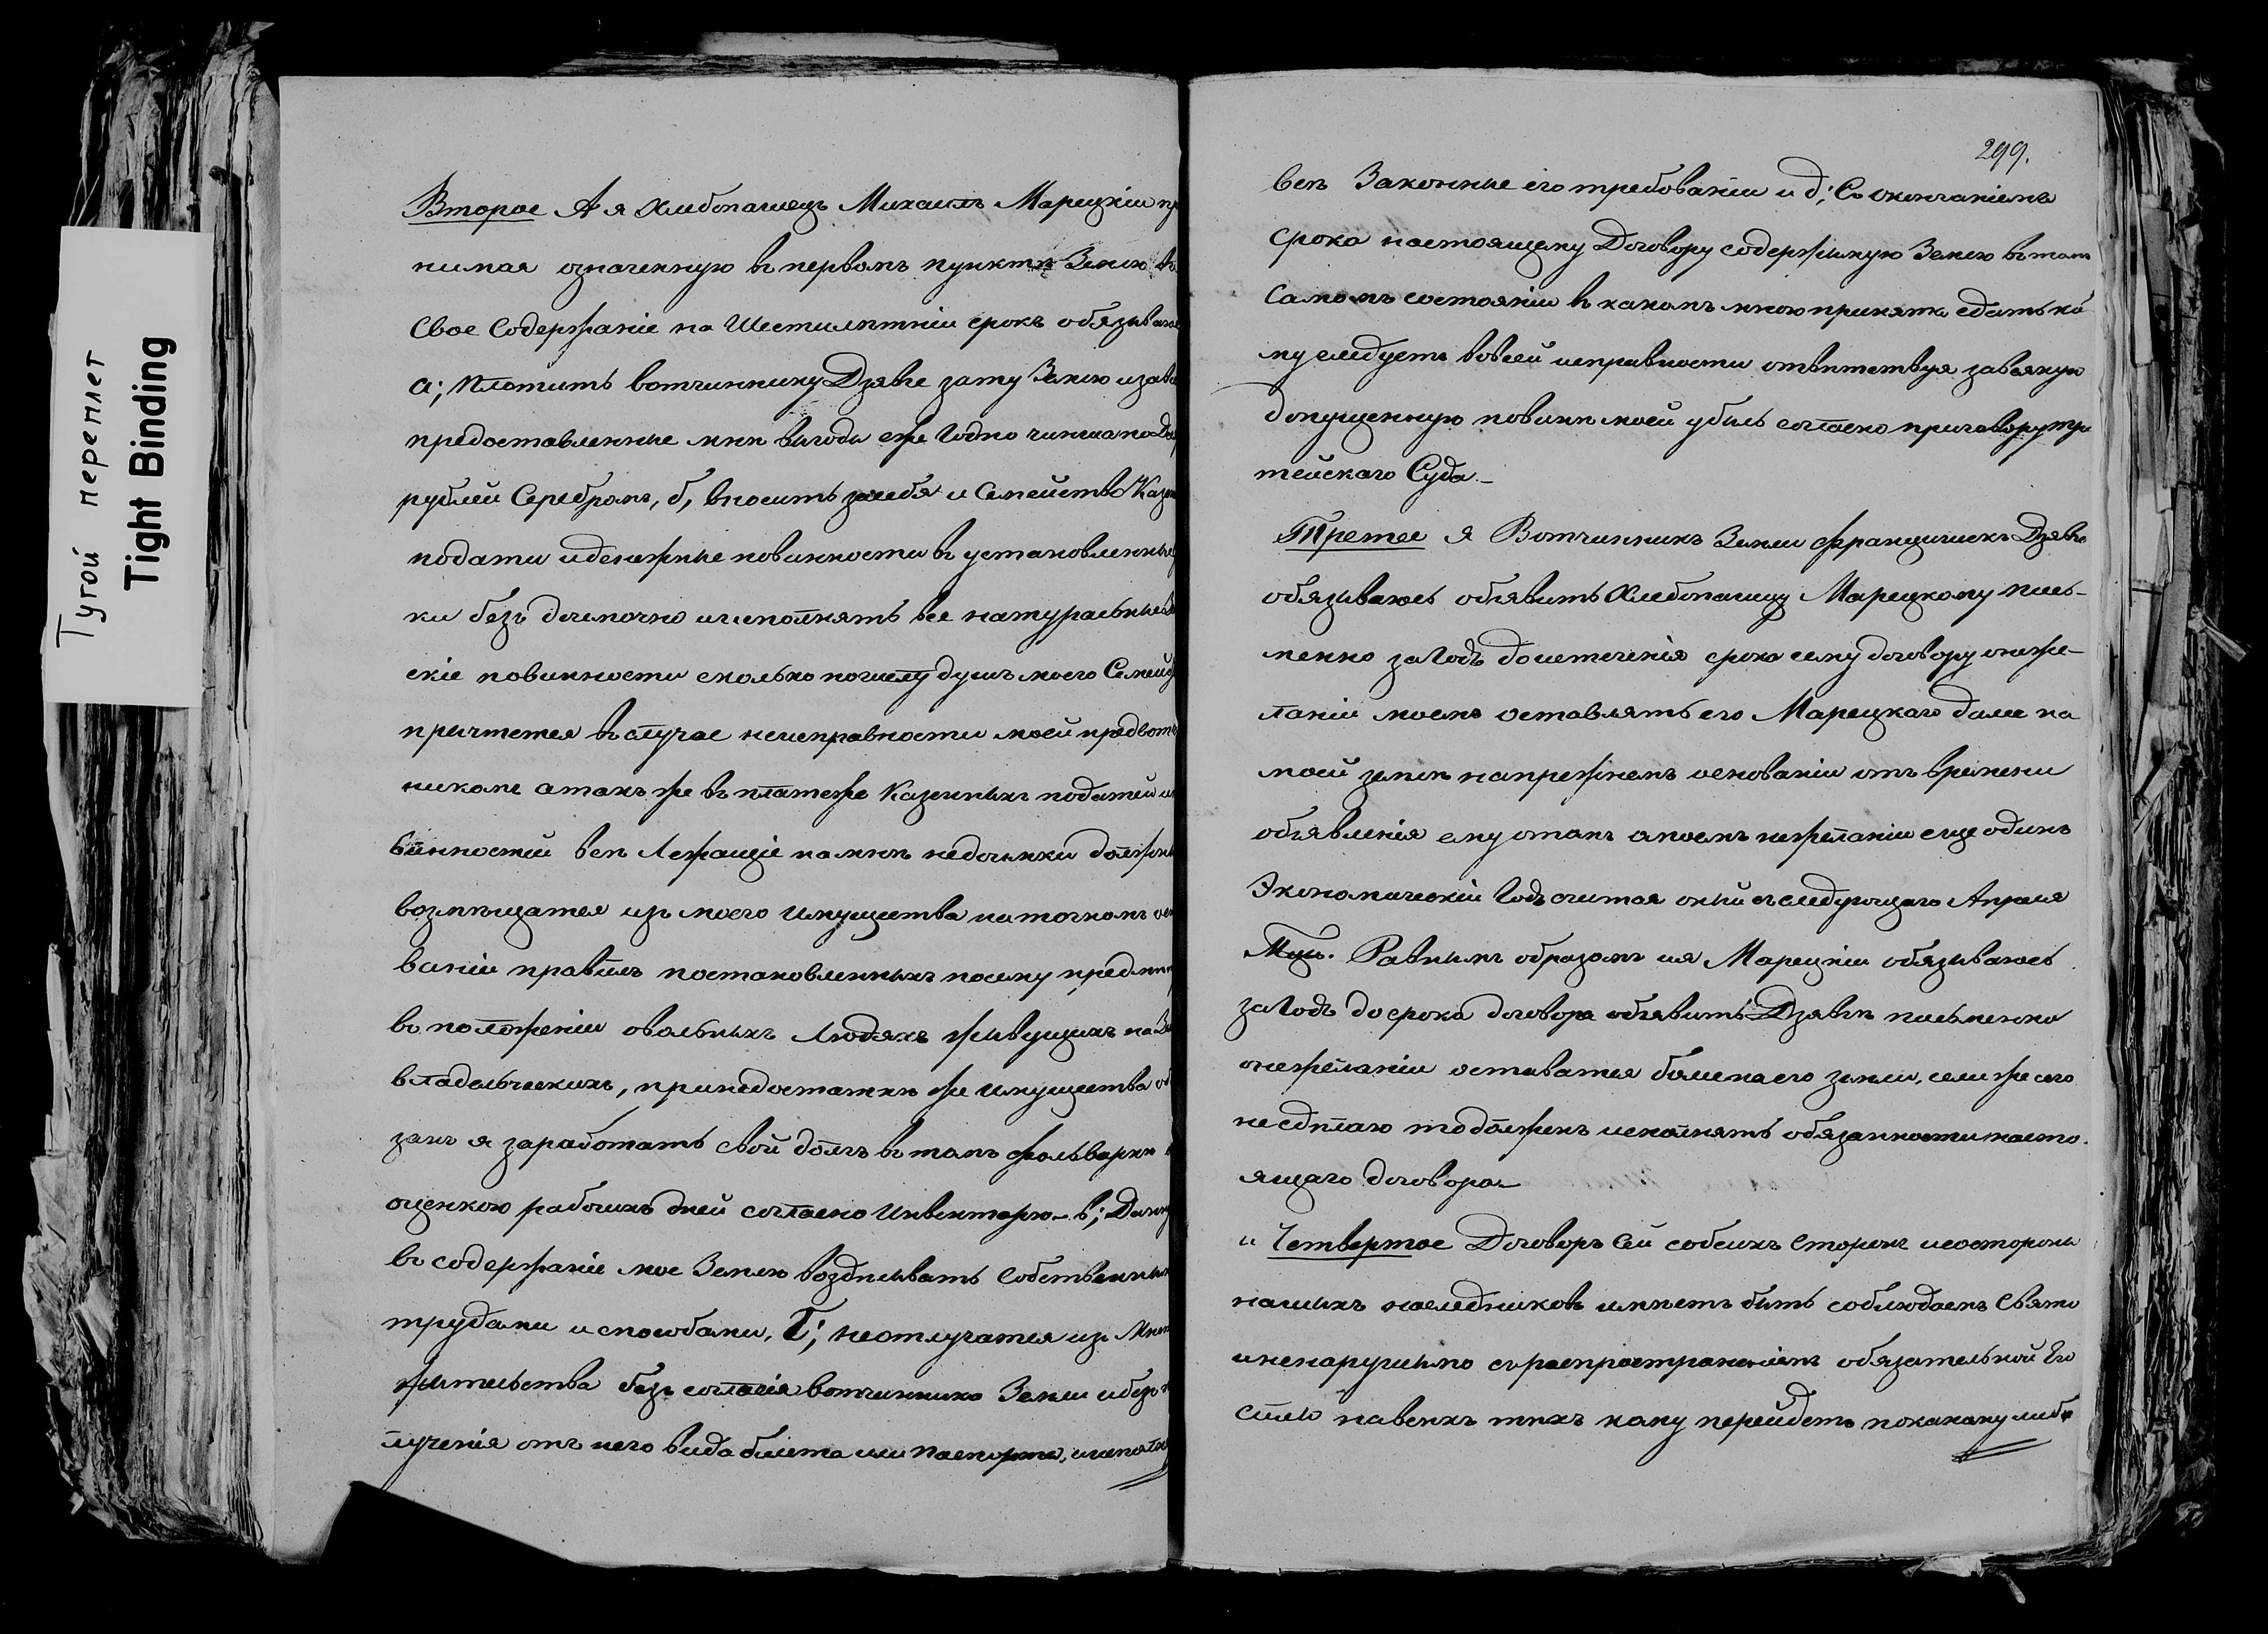 Тугой переплет
Tight Binding
Второе А я Хлебопашецъ Михаилъ Марецкій пр
нимая означенную въ первомъ пунктѣ Землю въ
свое Содержаніе на Шестилѣтній срокъ обязываюс
а; Платить вотчиннику Дзявге зату Землю изав
предоставленные мнѣ выгоды еже Годно чинша по
рублей Серебромъ, б, вносить засебя и Семейство Казен
подати иденежные повинности въ установленные
ки безъ доимочно иисполнять все натуральные
скіе повинности сколько почислу душъ моего Семей
причтется въ случае неисправности моей предвотч
никоме атакъ же въ платеже Казенныхъ податей и
винностей всѣ Лежащіе намнѣ недоимки должны
возмѣщатся изъ моего имущества наточномъ осн
ваніи правилъ постановленныхъ посему предме
въ положеніи овольныхъ Людяхъ живущихъ на
владельческихъ, принедостаткѣ же имущества об
занъ я заработать свой долгъ въ томъ фольварке
оценкою рабочихъ дней согласно Инвентарю - в; Данну
въ содержаніе мое Землю воздѣлывать Собственны
трудами испособами, Г; неотлучатся изъ Мѣс
жительства безъ согласія вотчинника Земли ибезъ
лученія отъ него вида билета или паспорта, исполн
299.
всѣ Законные его требованіи и д; Со окончаніемъ
срока настоящему Договору содержимую Землю въ томъ
Самомъ состояніи въ какомъ мною принята сдать ко
му следуетъ вовсей исправности отвѣтствуя завсякую
допущенную повинѣ моей убыль согласно приговору тре
тейскаго Суда -
Третее я Вотчинникъ Земли Францишекъ Дзявго
обязываюсь объявить Хлебопашцу Марецкому пись-
менно загодъ доистеченія срока сему договору онеже-
ланіи моемъ оставлять его Марецкаго далее на
моей землѣ напрежнемъ основаніи отъ времени
объявленія ему отомъ омоемъ нежеланіи еще одинъ
Экономическій Годъ считая оный съследующаго Апреля
Мцы. Равнымъ образомъ ия Марецкій обязываюсь
загодъ до срока договора объявить Дзявгѣ письменно
онежеланіи оставатся болеенаего земли, если же сего
не сдѣлаю то долженъ исполнять обязанности насто-
ящаго договора
и Четвертое Договоръ Сей собеихъ Сторонъ исостороны
нашихъ наследниковъ имѣетъ быть соблюдаемъ Свято
иненарушимо съраспространеніемъ обязательной его
силы навсехъ тѣхъ кому перейдетъ покакому либо